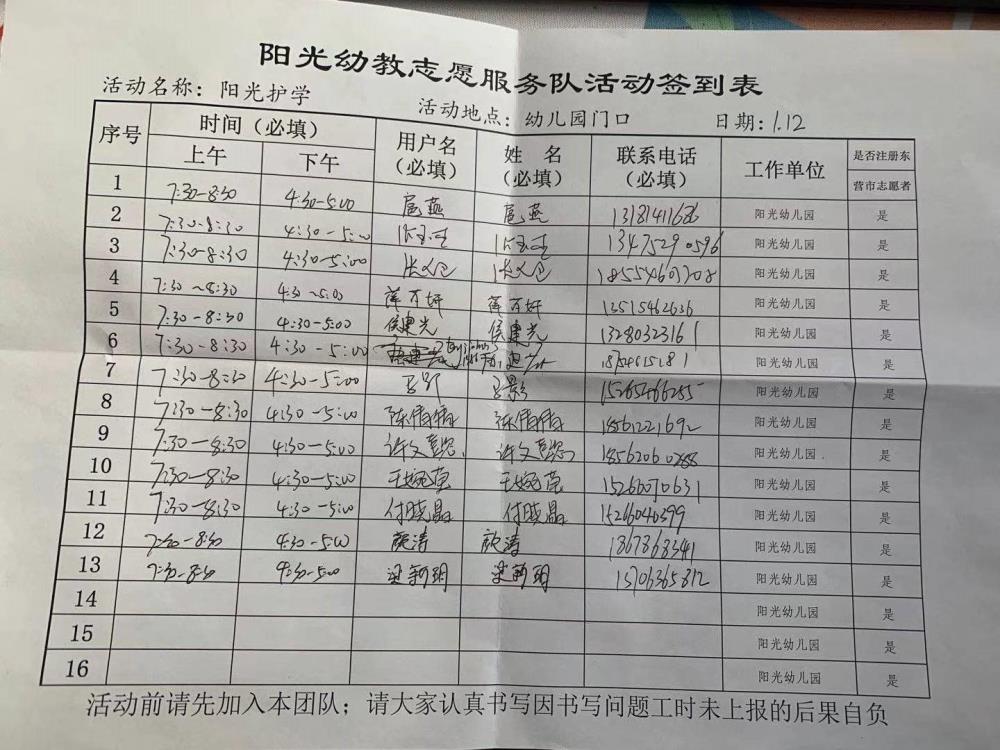 阳光幼教志愿服务队活动签到表
活动名称：阳光护学 活动地点：幼儿园门口 日期：1.12
序号 时间（必填） 用户名（必填） 姓 名（必填） 联系电话（必填） 工作单位 是否注册东营市志愿者
上午 下午
1 7:30-8:30 4:30-5:00 扈燕 扈燕 阳光幼儿园 是
2 7:30-8:30 4:30-5:00 13475290596 阳光幼儿园 是
3 7:30-8:30 4:30-5:00 18554609708 阳光幼儿园 是
4 7:30~8:30 4:30~5:00 薛方妍 薛方妍 13515462636 阳光幼儿园 是
5 7:30-8:30 4:30-5:00 侯建光 侯建光 13280323161 阳光幼儿园 是
6 7:30-8:30 4:30-5:00 阳光幼儿园 是
7 7:30-8:30 4:30-5:00 王影 王影 15265466255 阳光幼儿园 是
8 7:30-8:30 4:30-5:00 陈倩倩 陈倩倩 18561221692 阳光幼儿园 是
9 7:30-8:30 4:30-5:00 许文 许文 阳光幼儿园 是
10 7:30-8:30 4:30-5:00 王婉莹 王婉莹 15266070631 阳光幼儿园 是
11 7:30-8:30 4:30-5:00 付晓晶 付晓晶 15266040399 阳光幼儿园 是
12 7:30-8:30 4:30-5:00 颜涛 颜涛 阳光幼儿园 是
13 7:30-8:30 4:30-5:00 梁新玥 梁新玥 13706365812 阳光幼儿园 是
14 阳光幼儿园 是
15 阳光幼儿园 是
16 阳光幼儿园 是
活动前请先加入本团队；请大家认真书写因书写问题工时未上报的后果自负